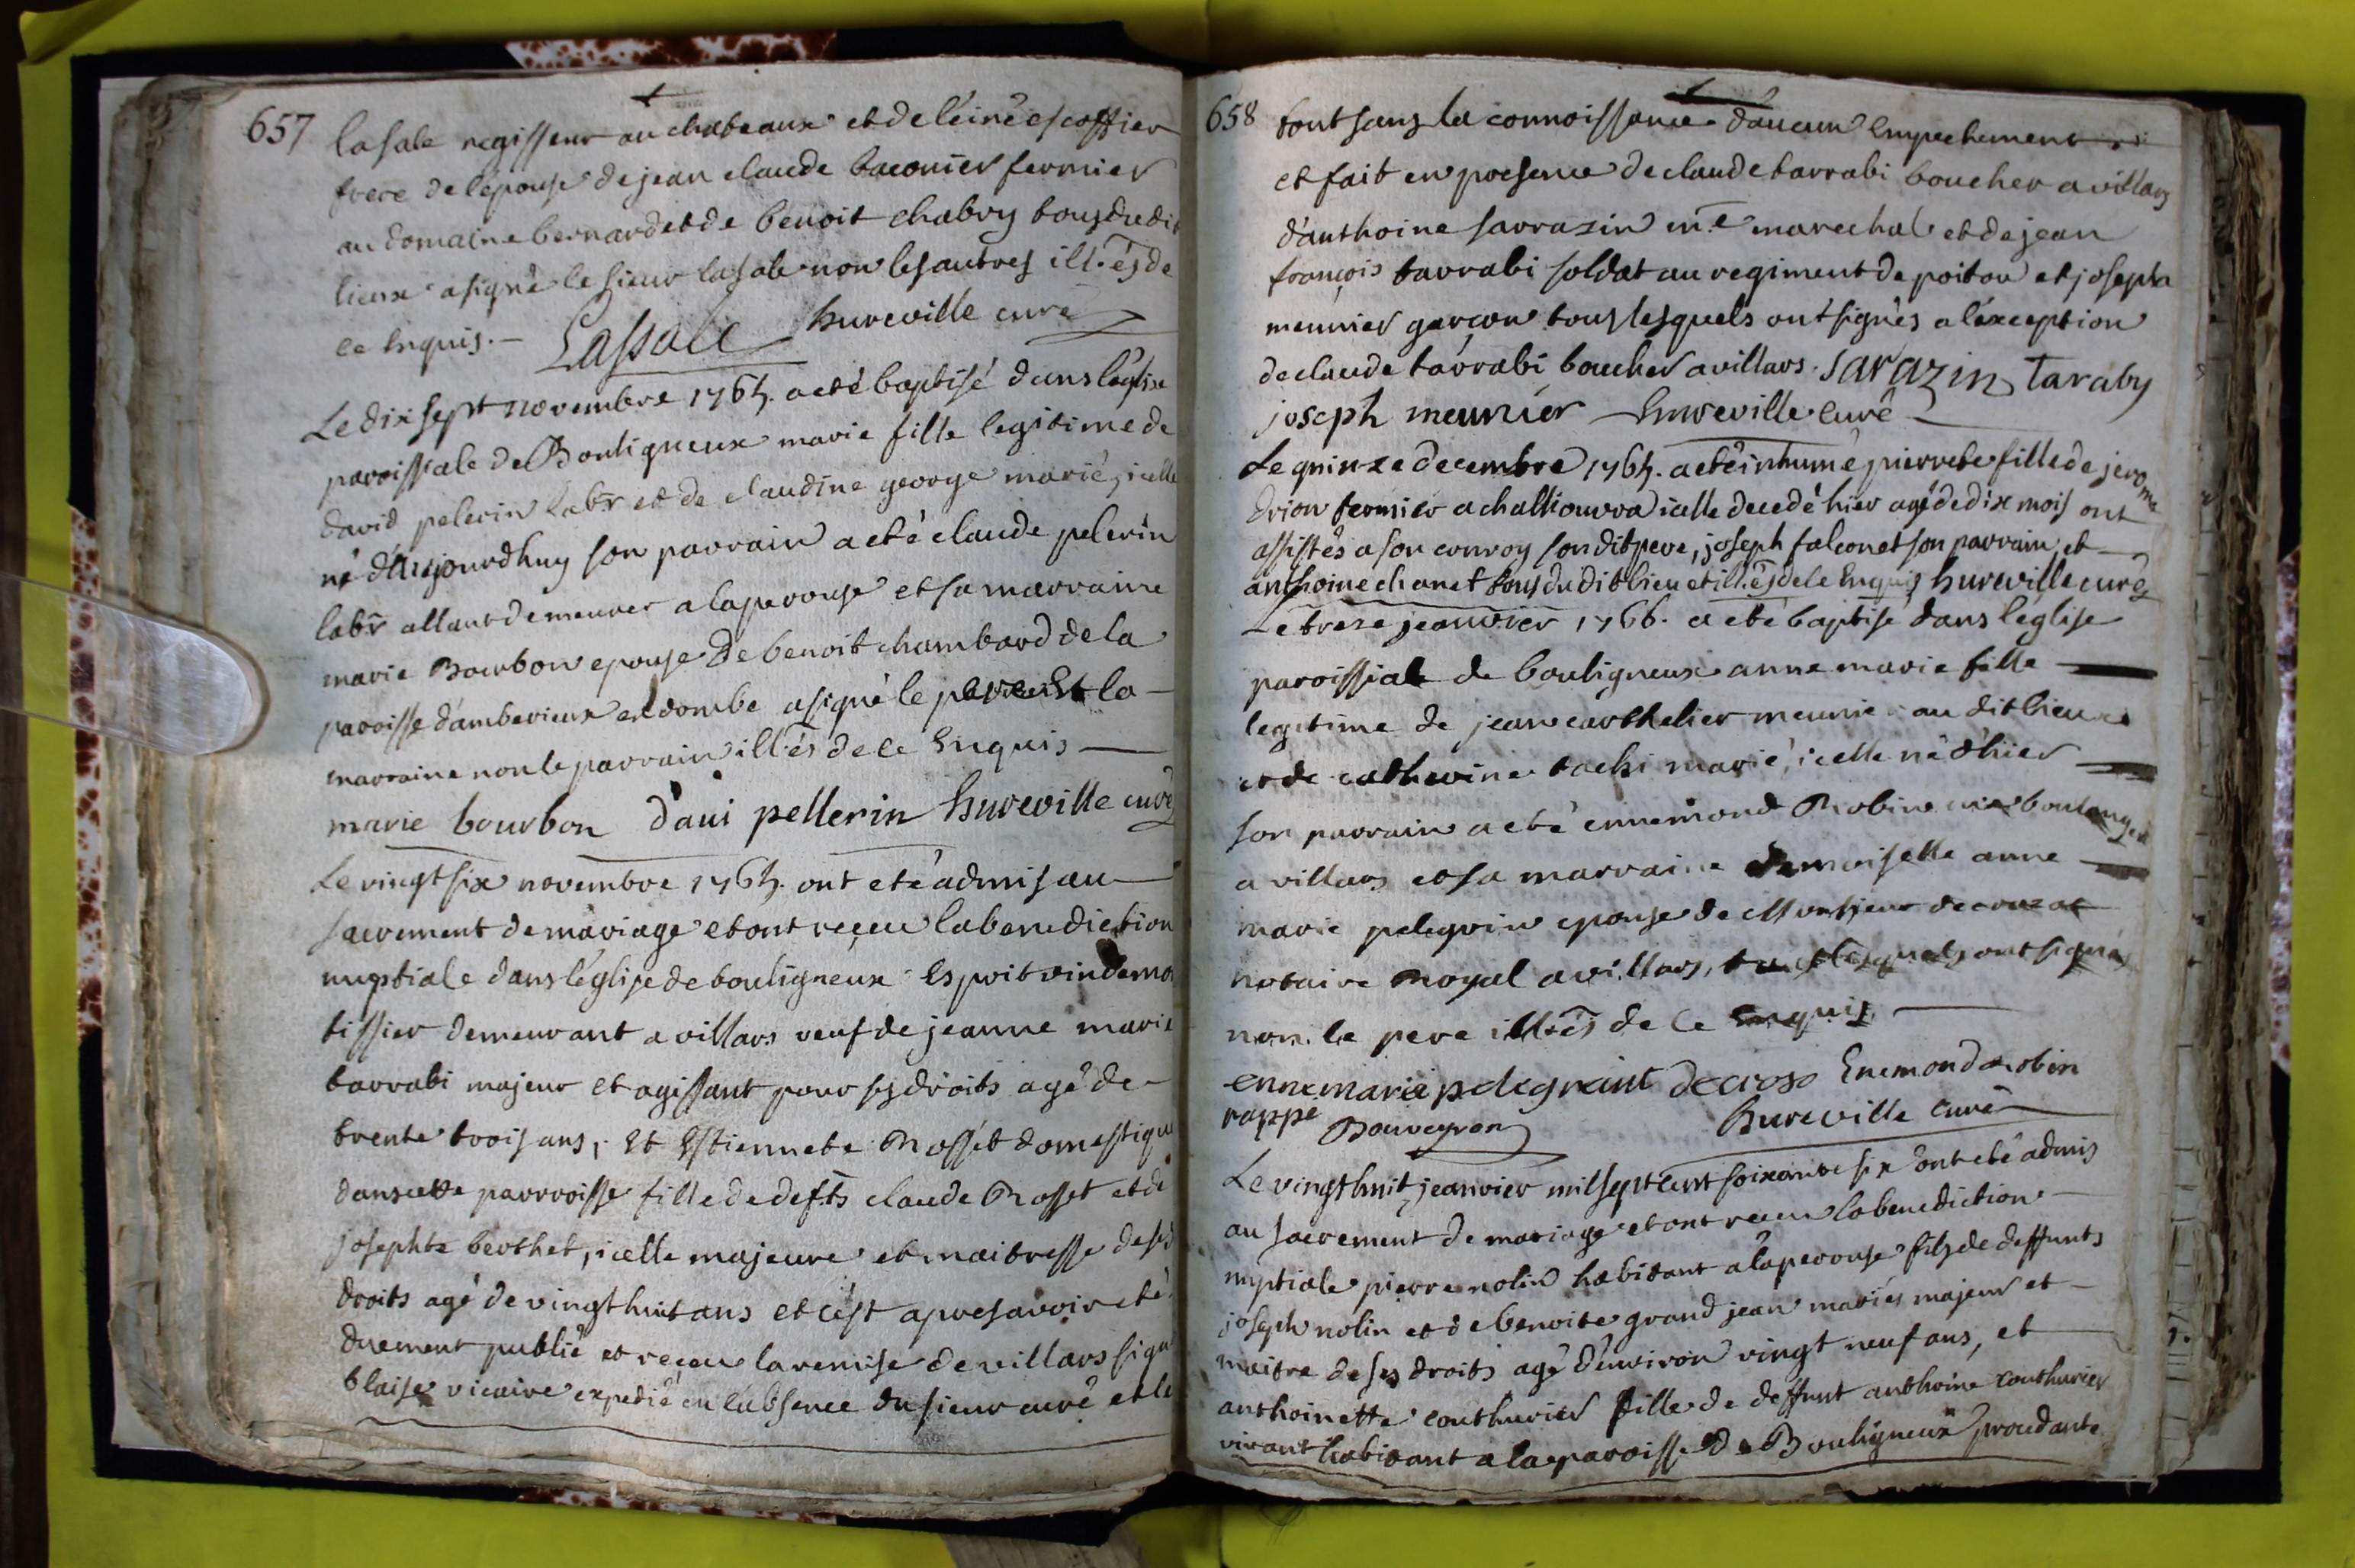 657
lasale regisseur au chateaux et de léiné escoffier
frere de lépouse de jean claude taconier fermier
au domaine bernard et de benoit chabry tous dudit
lieux a signé le sieur lasale non les autres ill.és de
ce Enquis.— Lassale hureville curé
Le dix sept novembre 1765. a eté baptisé dans léglise
paroissiale de Bouligneux marie fille legitime de
david pelerin labr et de claudine george marié, icelle
né d'aujourdhuy son parrain a eté claude pelerin
labr allant demeurer a laperouse et sa marraine
marie Bourbon epouse de benoit chambard de la
paroisse d'amberieux en dombe a signé le pere Et la
marraine non le parrain illés de ce Enquis
marie bourbon d'aui pellerin hureville curé
Le vingt six novembre 1765. ont eté admis au
sacrement de mariage et ont reçeu la benediction
nuptiale dans léglise de bouligneux Esprit
tissier demeurant a villars veuf de jeanne marie
tarrabi majeur et agissant pour ses droits agé de
trente trois ans, Et Estiennete Rosset domestique
dans cette parroisse fille de defts claude Rosset et de
josephte berthet, icelle majeure et maitresse de ses
droits agé de vingt huit ans et c'est apres avoir eté
duement publié et reçeu la remise de villars signé
blaise vicaire expedié en l'absence du sieur curé et le
658
tout sans la connoissance d'aucun Empechement
et fait en presence de claude tarrabi boucher a villars
d'anthoine sarrazin me marechal et de jean
françois tarrabi soldat au regiment de poitou et joseph
meunier garçon tous lesquels ont signés a léxception
de claude tarrabi boucher a villars. Sarazin Taraby
joseph meunier hureville curé
Le quinze decembre 1765. a eté inhumé pierrete fille de jerome
drion fermier a challiouvra icelle decedé hier agé de dix mois ont
assistés a son convoy son dit pere, joseph falconet son parrain et
anthoine chanet tous du dit lieu et ill.és de ce Enquis hureville curé
Le treze jeanvier 1766. a eté baptisé dans léglise
paroissiale de bouligneux anne marie fille
legitime de jean carthelier meunier au dit lieux
et de catherine tachi marié, icelle né d'hier
son parrain a eté ennemond Robin boulanger
a villars et sa marraine demoiselle anne
marie pelegrin epouse de Monsieur decrozat
notaire Royal a villars, tous lesquels ont signés
non le pere illés de ce Enquis
ennemarie pelegraint decroso Enemond robin
rappe Bouveyron hureville curé
Le vingt huit jeanvier mil sept cent soixante six ont eté admis
au sacrement de mariage et ont reçeu la benediction
nuptiale pierre nolin habitant a laperouse fils de deffunts
joseph nolin et de benoite grand jean mariés majeur et
maitre de ses droits agé d'environ vingt neuf ans, et
anthoinette couthurier fille de deffunt anthoine couthurier
vivant habitant a la paroisse de Bouligneux